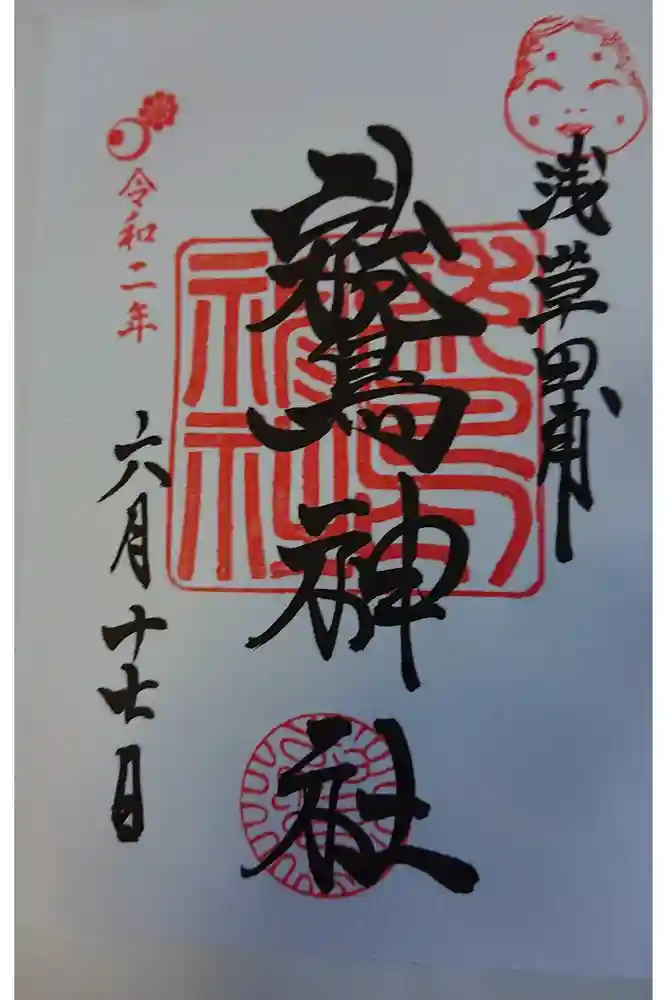 浅草田甫
鷲神社
令和二年
六月十七日